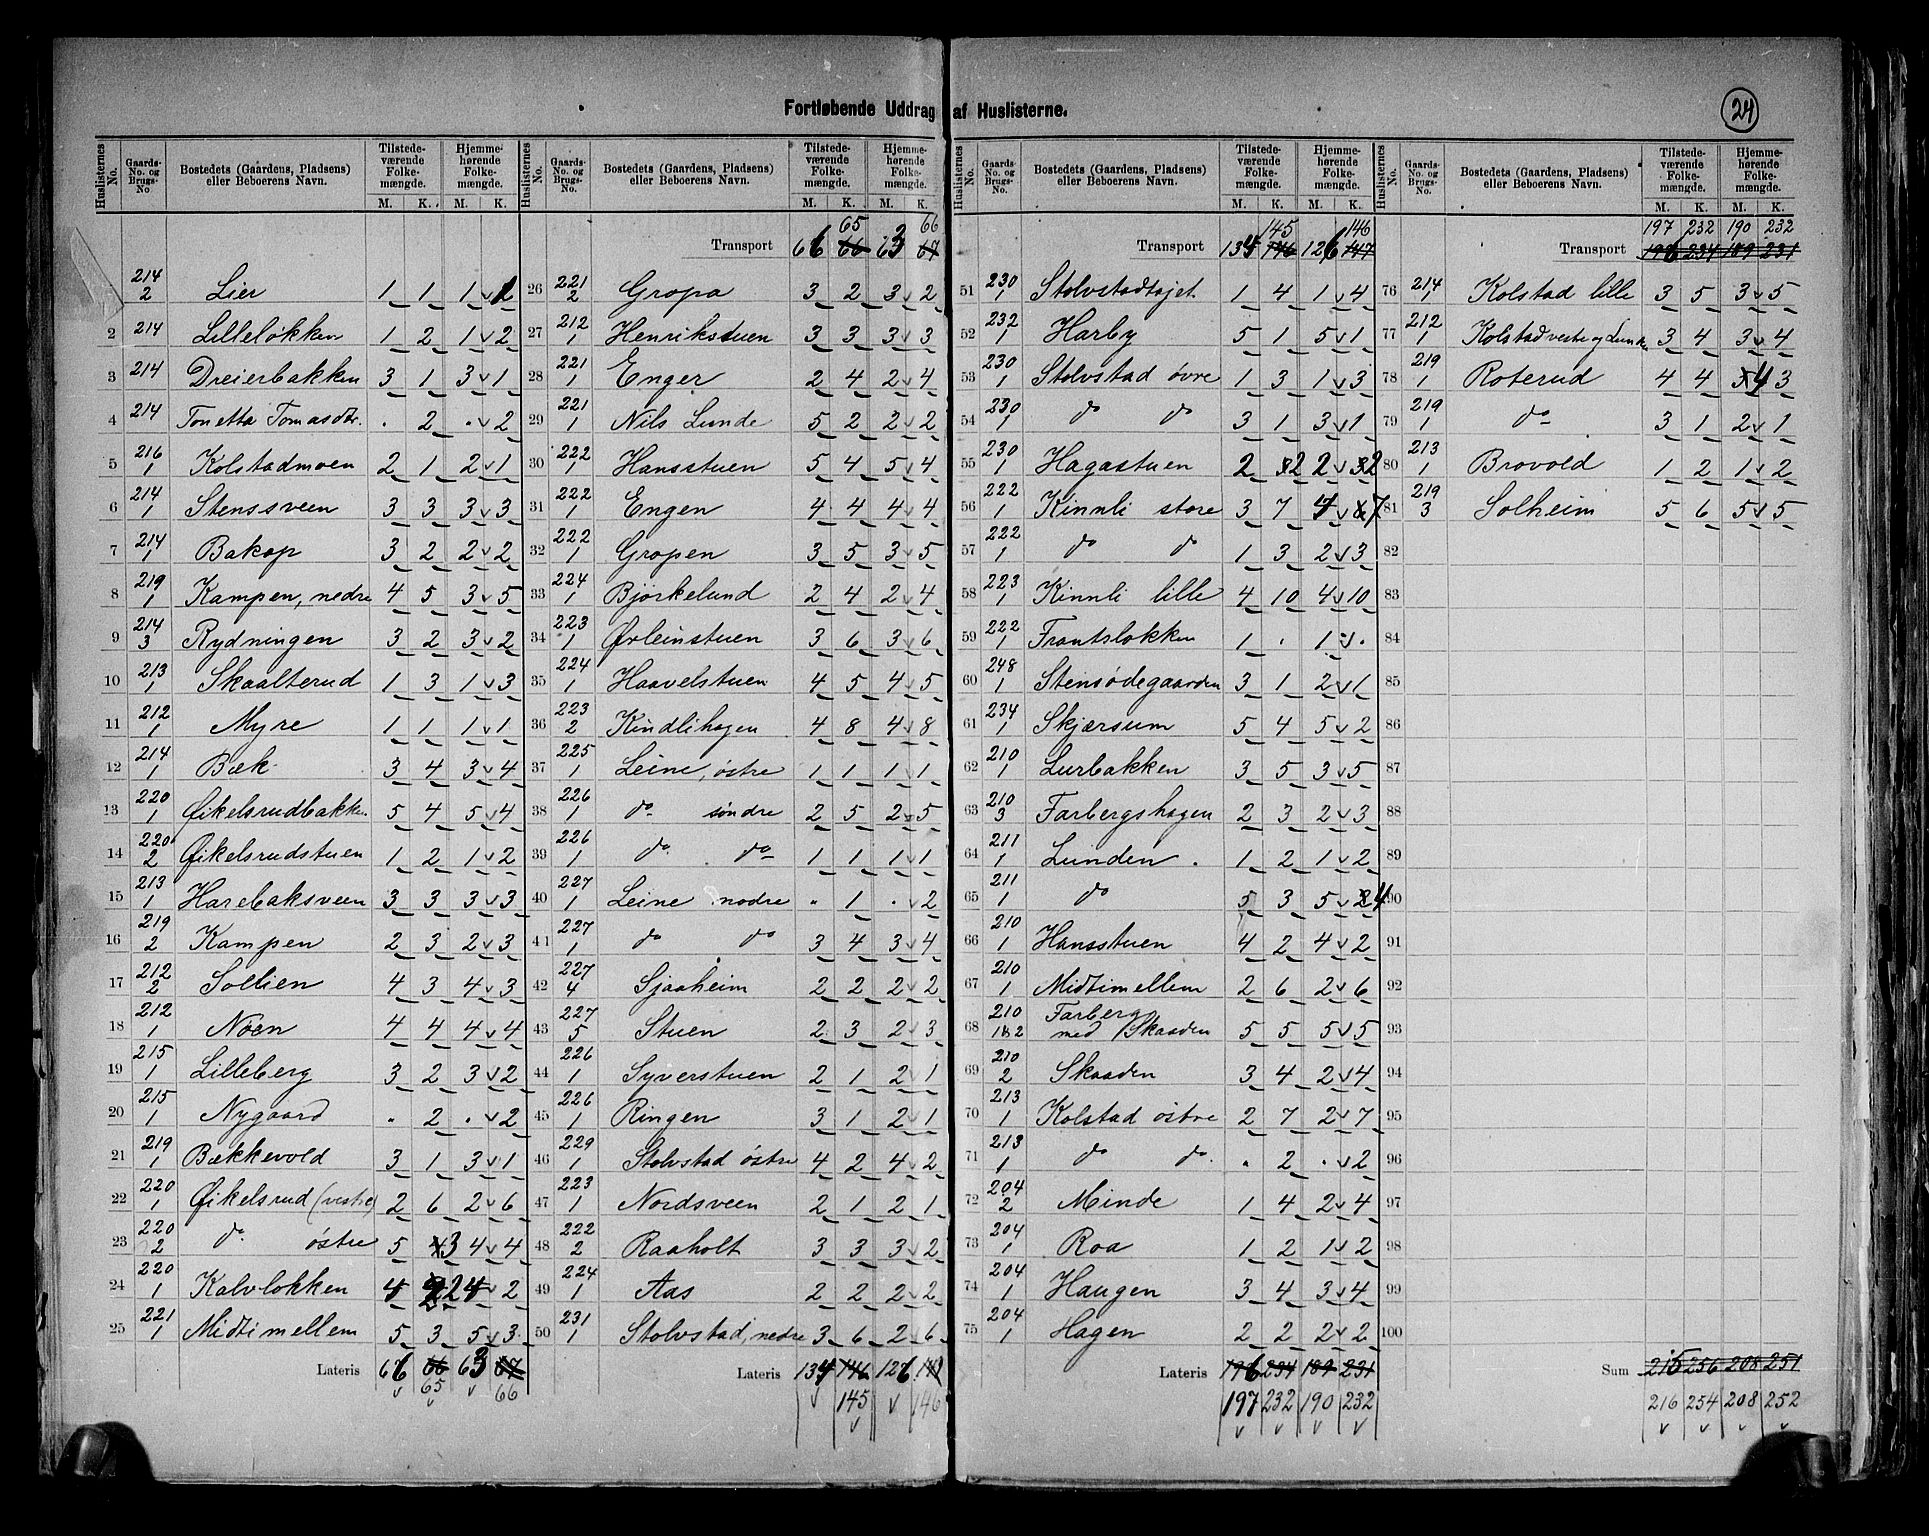 Fortløbende Uddrag af Huslisterne.
24
Huslisternes No. Gaards-No. og Brugs-No. Bostedets (Gaardens, Pladsens) eller Beboerens Navn. Tilstedeværende Folkemængde. M. K. Hjemmehørende Folkemængde. M. K.
214 2 Lier 1 1 1 2
2 214 Lilleløkken 1 2 1 2
3 214 Dreierbakken 3 1 3 1
4 214 Tonetta Tomasdtr. . 2 . 2
5 216 1 Kolstadmoen 2 1 2 1
6 214 1 Stenssveen 3 3 3 3
7 214 1 Bakop 3 2 2 2
8 219 1 Kampen, nedre 4 5 3 5
9 214 3 Rydningen 3 2 3 2
10 213 1 Skaalterud 1 3 1 3
11 212 1 Myre 1 1 1 1
12 214 1 Bæk 3 4 3 4
13 220 1 Øikelsrudbakken 5 4 5 4
14 220 2 Øikelsrudstuen 1 2 1 2
15 213 1 Harebaksveen 3 3 3 3
16 219 2 Kampen 2 3 2 3
17 212 2 Sollien 4 3 4 3
18 212 1 Noen 4 4 4 4
19 215 1 Lilleberg 3 2 3 2
20 215 1 Nygaard . 2 . 2
21 219 1 Bækkevold 3 1 3 1
22 220 1 Øikelsrud (vestre) 2 6 2 6
23 220 2 do østre 5 3 4 4
24 220 1 Kalvløkken 4 2 4 2
25 221 1 Midtimellem 5 3 5 3
Lateris 66 66 63 67
65 66
Huslisternes No. Gaards-No. og Brugs-No. Bostedets (Gaardens, Pladsens) eller Beboerens Navn. Tilstedeværende Folkemængde. M. K. Hjemmehørende Folkemængde. M. K.
65 66
Transport 66 66 63 67
26 221 2 Gropa 3 2 3 2
27 212 1 Henrikstuen 3 3 3 3
28 221 1 Enger 2 4 2 4
29 221 1 Nils Lunde 5 2 2 2
30 222 1 Hansstuen 5 4 5 4
31 222 1 Engen 4 4 4 4
32 222 1 Gropen 3 5 3 5
33 224 1 Bjørkelund 2 4 2 4
34 223 1 Ørleinstuen 3 6 3 6
35 224 1 Haavelstuen 4 5 4 5
36 223 2 Kindlihagen 4 8 4 8
37 225 1 Leine, østre 1 1 1 1
38 226 1 do søndre 2 5 2 5
39 226 1 do do 1 1 1 1
40 227 1 Leine nedre . 1 . 2
41 227 1 do do 3 4 3 4
42 227 4 Sjaaheim 2 2 2 2
43 227 5 Stuen 2 3 2 3
44 226 1 Syverstuen 2 1 2 1
45 226 1 Ringen 3 1 2 1
46 229 1 Stolvstad østre 4 2 4 2
47 223 1 Nordsveen 2 1 2 1
48 222 2 Raaholt 3 3 3 2
49 224 1 Aas 2 2 2 2
50 231 1 Stolvstad, nedre 3 6 2 6
Lateris 134 146 126 147
145 146
Huslisternes No. Gaards-No. og Brugs-No. Bostedets (Gaardens, Pladsens) eller Beboerens Navn. Tilstedeværende Folkemængde. M. K. Hjemmehørende Folkemængde. M. K.
145 146
Transport 134 146 126 147
51 230 1 Stolvstadtøjet 1 4 1 4
52 232 1 Harby 5 1 5 1
53 230 1 Stolvstad øvre 1 3 1 3
54 230 1 do do 3 1 3 1
55 230 1 Hagastuen 2 2 2 2
56 222 1 Kinnli store 3 7 4 7
57 222 1 do do 1 3 2 3
58 223 1 Kinnli lille 4 10 4 10
59 222 1 Frantsløkken 1 . 1 .
60 248 1 Stensødegaarden 3 1 2 1
61 234 1 Skjærsum 5 4 5 2
62 210 1 Lurbakken 3 5 3 5
63 210 3 Farbergshagen 2 3 2 3
64 211 1 Lunden 1 2 1 2
65 211 1 do 5 3 5 4
66 210 1 Hansstuen 4 2 4 2
67 210 1 Midtimellem 2 6 2 6
68 210 1&2 Farberg med Skaaden 5 5 5 5
69 210 2 Skaaden 3 4 2 4
70 213 1 Kolstad østre 2 7 2 7
71 213 1 do do . 2 . 2
72 204 2 Minde 1 4 2 4
73 204 1 Roa 1 2 1 2
74 204 1 Haugen 3 4 3 4
75 204 1 Hagen 2 2 2 2
Lateris 196 234 189 231
197 232 190 232
Huslisternes No. Gaards-No. og Brugs-No. Bostedets (Gaardens, Pladsens) eller Beboerens Navn. Tilstedeværende Folkemængde. M. K. Hjemmehørende Folkemængde. M. K.
197 232 190 232
Transport 196 234 189 231
76 214 1 Kolstad lille 3 5 3 5
77 212 1 Kolstad vestre og Lunken 3 4 3 4
78 219 1 Roterud 4 4 4 3
79 219 1 do 3 1 2 1
80 213 1 Brovold 1 2 1 2
81 219 3 Solheim 5 6 5 5
82
83
84
85
86
87
88
89
90
91
92
93
94
95
96
97
98
99
100
Sum 215 256 208 251
216 254 208 252